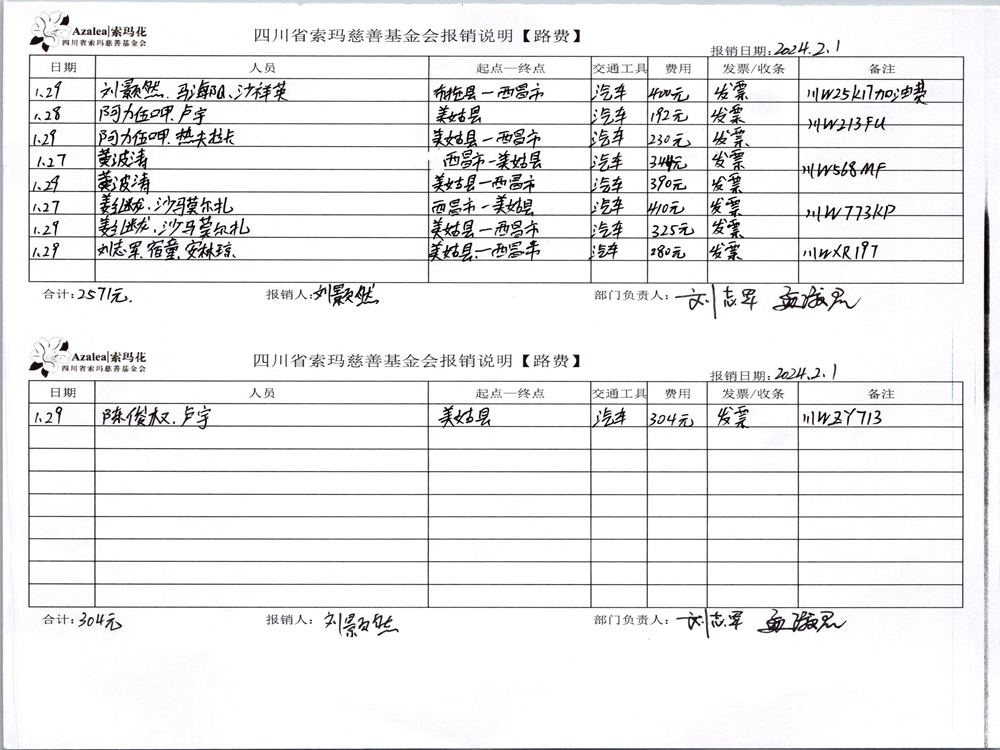 Azalea|索玛花
四川省索玛慈善基金会
四川省索玛慈善基金会报销说明【路费】
报销日期:2024.2.1
日期 人员 起点—终点 交通工具 费用 发票/收条 备注
1.29 刘颢然、马海阳、沙祥英 布拖县—西昌市 汽车 400元 发票 川W25K17加油费
1.28 阿力伍呷.卢宇 美姑县 汽车 192元 发票 川W213FU
1.29 阿力伍呷.热夫拉卡 美姑县—西昌市 汽车 230元 发票
1.27 黄波涛 西昌市—美姑县 汽车 344元 发票 川W568MF
1.29 黄波涛 美姑县—西昌市 汽车 390元 发票
1.27 沙马莫尔扎 西昌市—美姑县 汽车 410元 发票 川W773KP
1.29 沙马莫尔扎 美姑县—西昌市 汽车 325元 发票
1.29 刘志军.宿童.安林琼. 美姑县—西昌市 汽车 280元 发票 川WXR197
合计:2571元. 报销人:刘颢然 部门负责人:刘志军
Azalea|索玛花
四川省索玛慈善基金会
四川省索玛慈善基金会报销说明【路费】
报销日期:2024.2.1
日期 人员 起点—终点 交通工具 费用 发票/收条 备注
1.29 陈俊权.卢宇 美姑县 汽车 304元 发票 川WZY713
合计:304元 报销人:刘颢然 部门负责人:刘志军